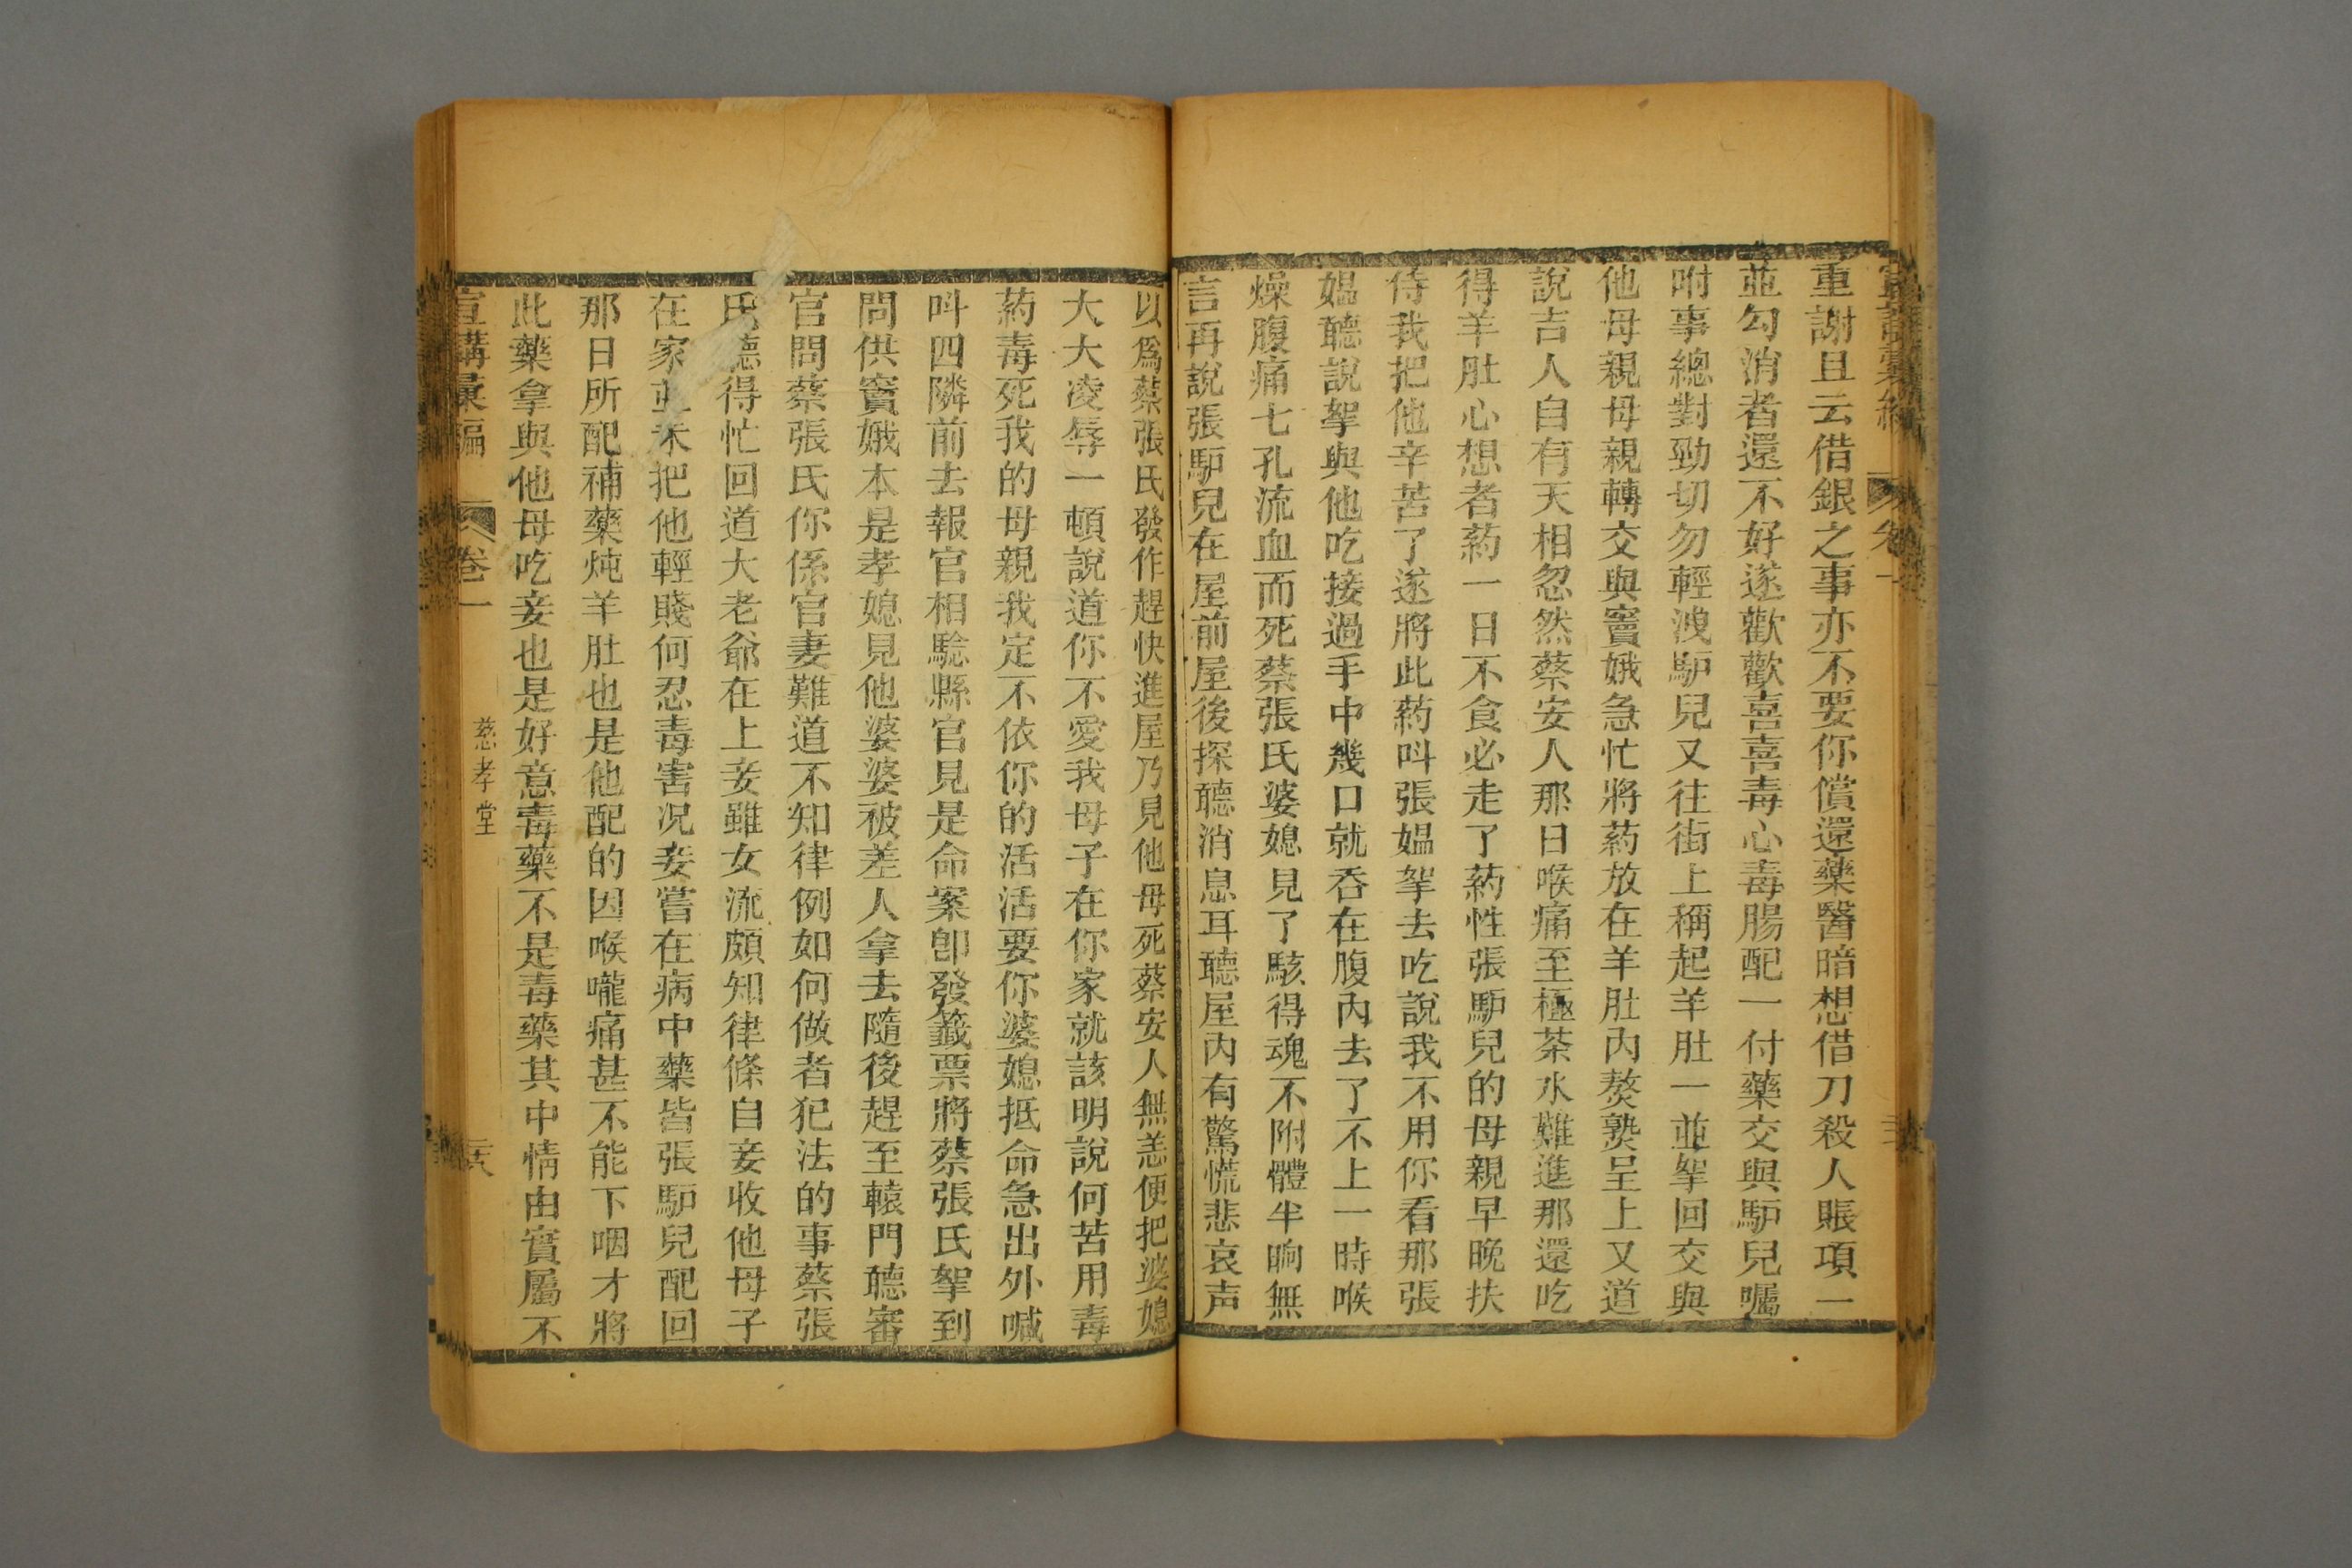 重謝且云借銀之事亦不要你償還藥醫暗想借刀殺人賬項一
並勾消者還不好遂歡歡喜喜毒心毒腸配一付藥交與馿兒囑
咐事總對勁切勿輕洩馿兒又往街上稱起羊肚一並拏回交與
他母親母親轉交與竇娥急忙將葯放在羊肚內熬熟呈上又道
說吉人自有天相忽然蔡安人那日喉痛至極茶水難進那還吃
得羊肚心想者葯一日不食必走了葯性張馿兒的母親早晚扶
侍我把他辛苦了遂將此葯呌張媼拏去吃說我不用你看那張
媼聽說拏與他吃接過手中幾口就吞在腹內去了不上一時喉
燥腹痛七孔流血而死蔡張氏婆媳見了駭得魂不附體半晌無
言再說張馿兒在屋前屋後探聽消息耳聽屋內有驚慌悲哀声
以爲蔡張氏發作趕快進屋乃見他母死蔡安人無恙便把婆媳
大大凌辱一頓說道你不愛我母子在你家就該明說何苦用毒
葯毒死我的母親我定不依你的活活要你婆媳抵命急出外喊
呌四隣前去報官相騐縣官見是命案卽發籤票將蔡張氏拏到
問供竇娥本是孝媳見他婆婆被差人拿去隨後趕至轅門聽審
官問蔡張氏你係官妻難道不知律例如何做者犯法的事蔡張
氏聽得忙回道大老爺在上妾雖女流頗知律條自妾收他母子
在家並未把他輕賤何忍毒害況妾嘗在病中藥皆張馿兒配回
那日所配補藥炖羊肚也是他配的因喉嚨痛甚不能下咽才將
此藥拿與他母吃妾也是好意毒藥不是毒藥其中情由實屬不
宣講彙編 卷一 慈孝堂 三六